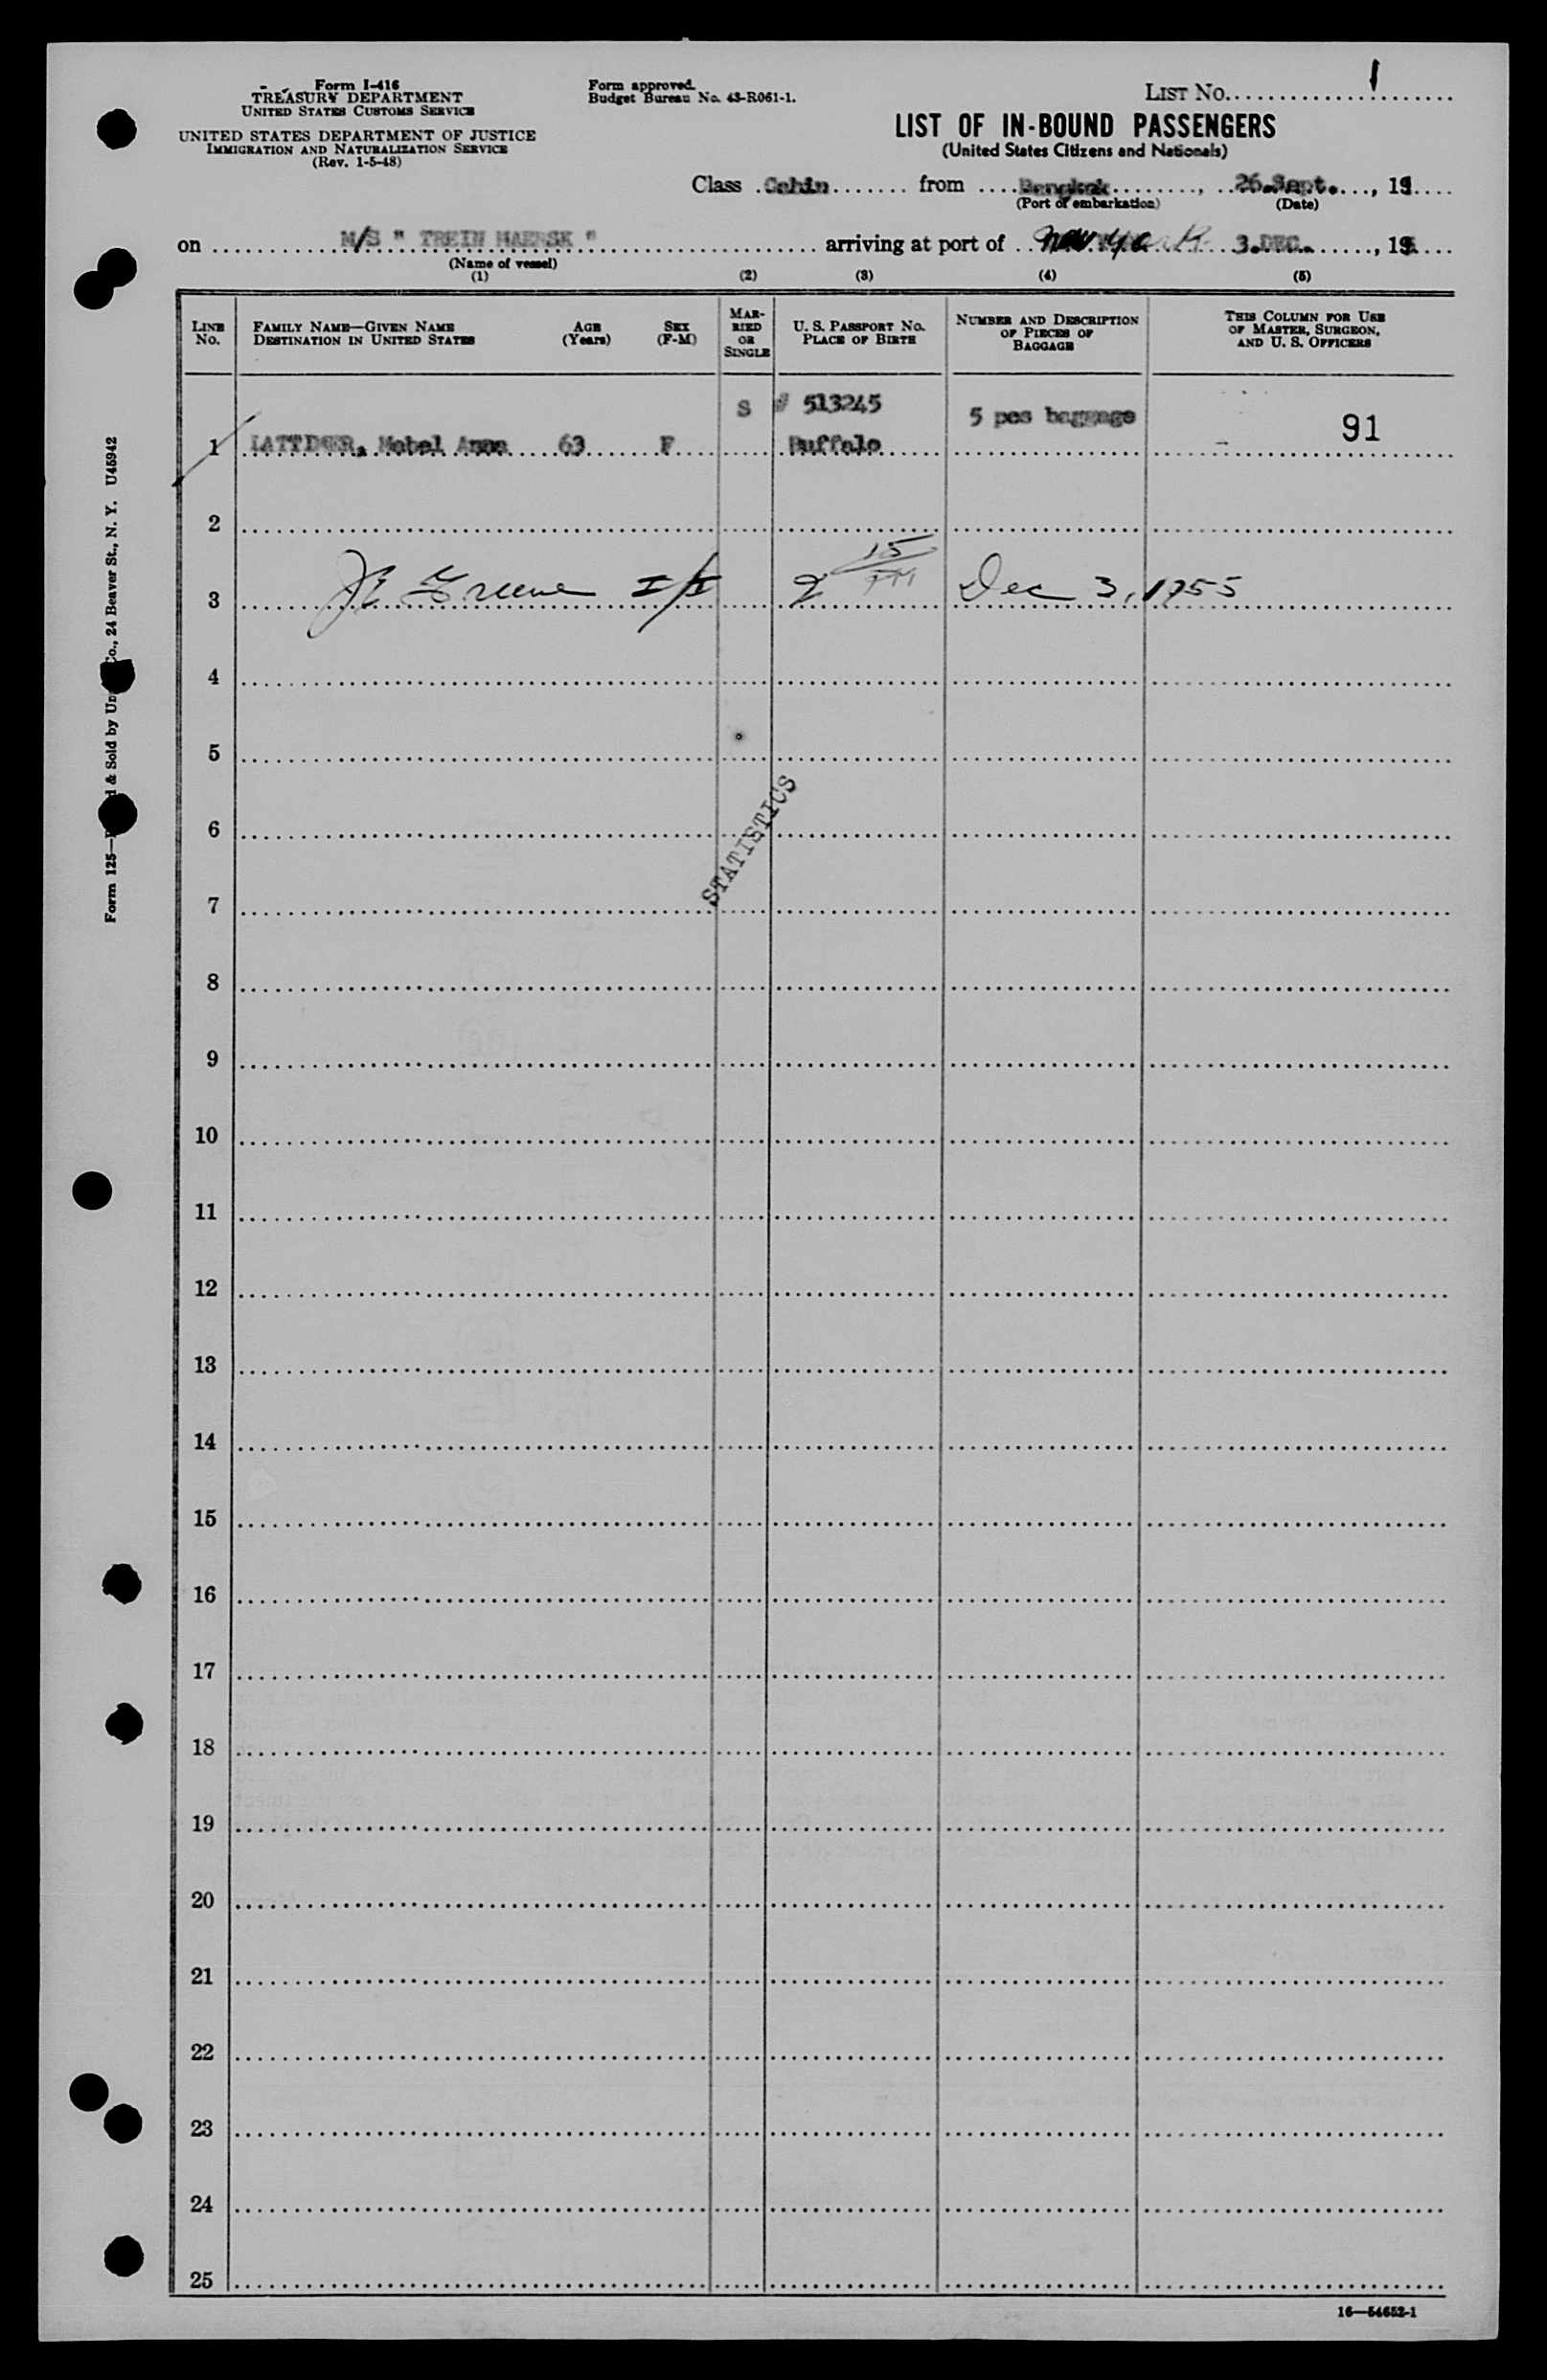 Form I-416
TREASURY DEPARTMENT
UNITED STATES CUSTOMS SERVICE
UNITED STATES DEPARTMENT OF JUSTICE
IMMIGRATION AND NATURALIZATION SERVICE
(Rev. 1-5-48)
Form approved.
Budget Bureau No. 43-R061-1.
LIST No. 1
LIST OF IN-BOUND PASSENGERS
(United States Citizens and Nationals)
Class Cabin from Bangkok, 26.Sept., 19
(Port of embarkation) (Date)
on M/S " TREIN MAERSK " arriving at port of New York 3.DEC., 19
(Name of vessel)
(1) (2) (3) (4) (5)
LINE No.
FAMILY NAME—GIVEN NAME DESTINATION IN UNITED STATES
AGE (Years)
SEX (F-M)
MARRIED OR SINGLE
U. S. PASSPORT No. PLACE OF BIRTH
NUMBER AND DESCRIPTION OF PIECES OF BAGGAGE
THIS COLUMN FOR USE OF MASTER, SURGEON, AND U. S. OFFICERS
S # 513245 5 pcs baggage 91
1 LATTIMER, Mabel Anne 63 F Buffalo
2
15
3 Greene I/I Dec 3, 1955
4
5
6
STATISTICS
7
8
9
10
11
12
13
14
15
16
17
18
19
20
21
22
23
24
25
16—54652-1
Form 125— & Sold by Co., 24 Beaver St., N. Y. U45942